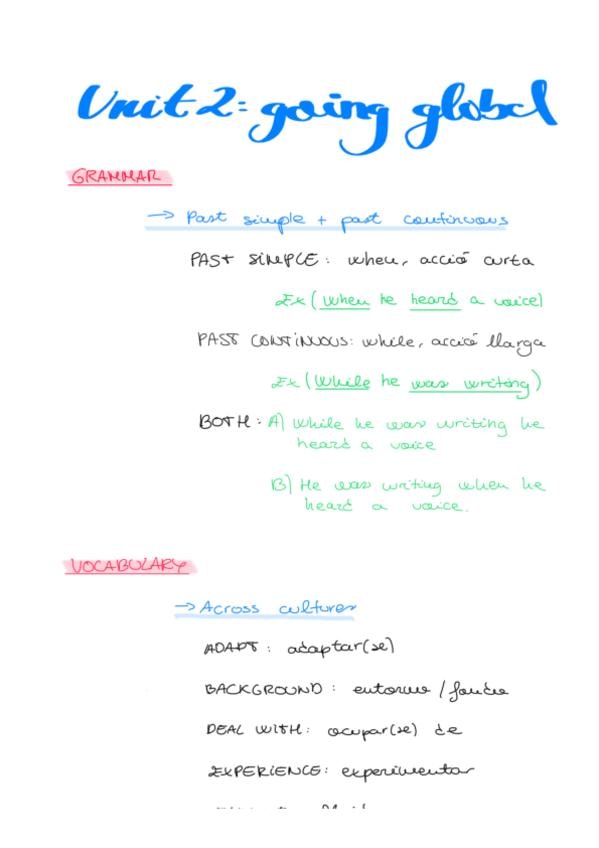 Unit 2: going global
GRAMMAR
→ Past simple + past continuous
PAST SIMPLE: when, acció curta
Ex (when he heard a voice)
PAST CONTINUOUS: while, acció llarga
Ex (While he was writing)
BOTH: A) While he was writing he
heard a voice
B) He was writing when he
heard a voice.
VOCABULARY
→ Across cultures
ADAPT: adaptar(se)
BACKGROUND: entorno / fondo
DEAL WITH: ocupar(se) de
EXPERIENCE: experimentar